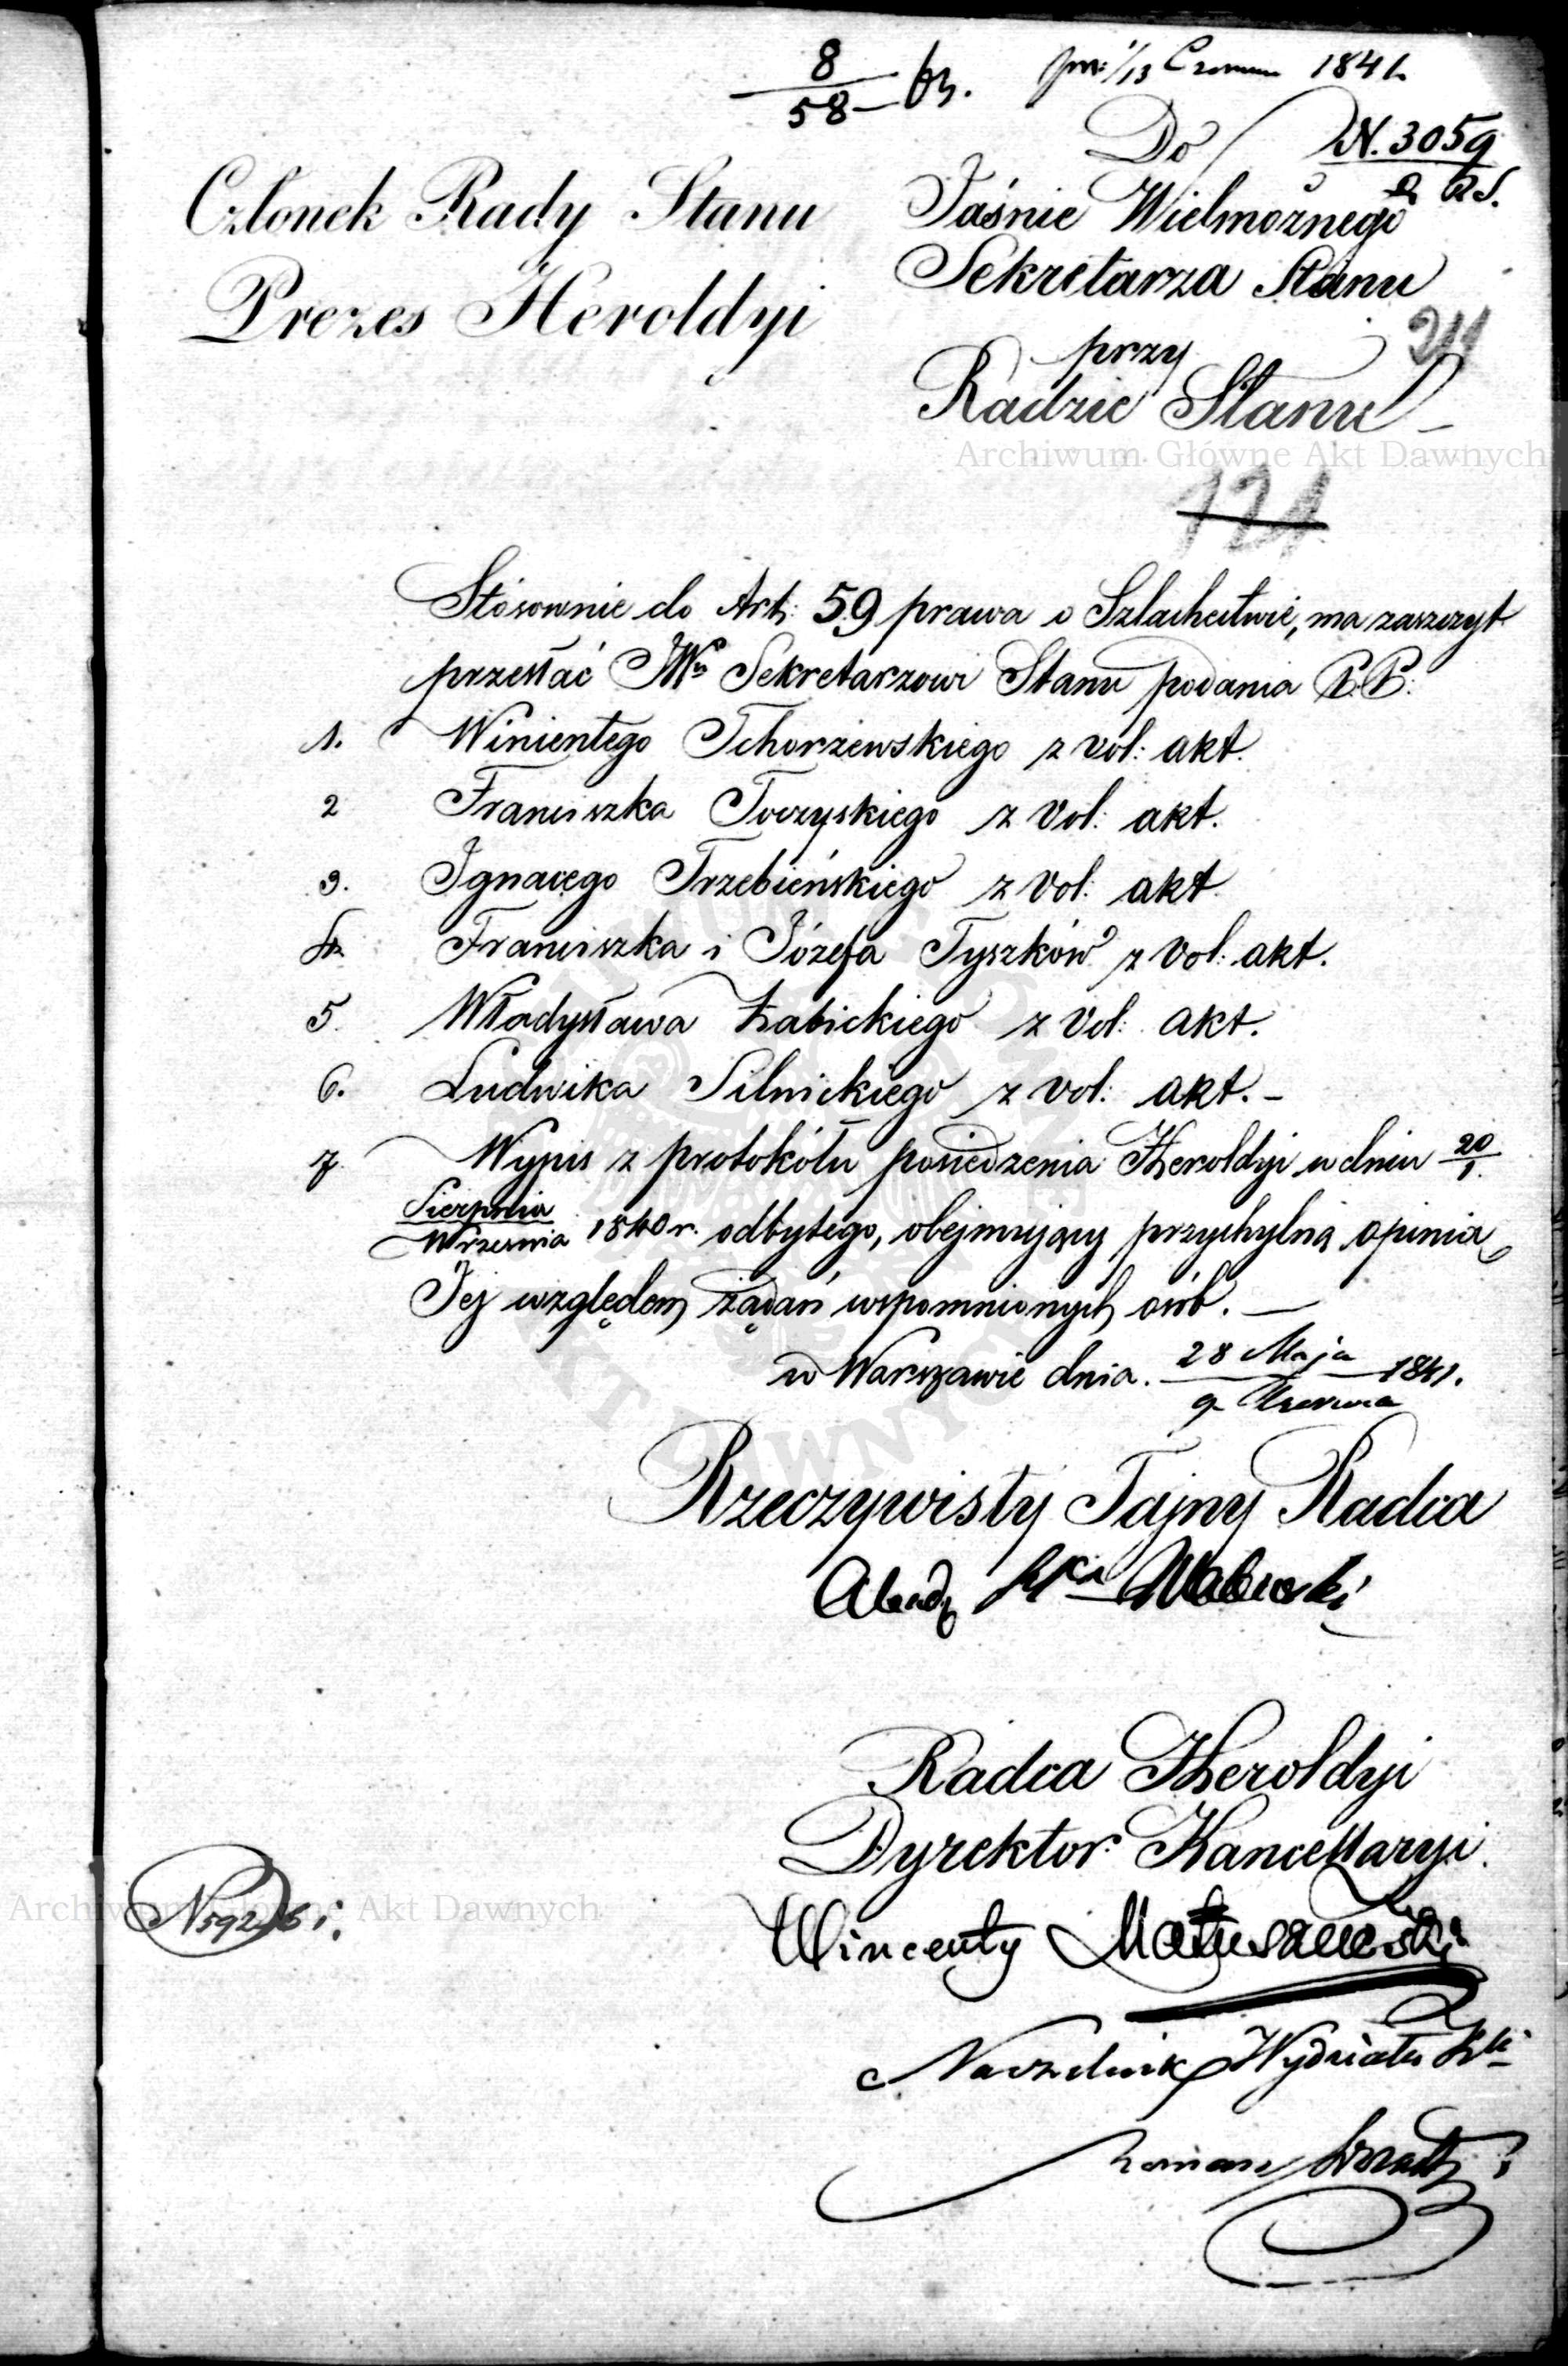 8
58
1/13 1841
Do
N. 3059
R S.
Członek Rady Stanu
Prezes Heroldyi
Jaśnie Wielmożnego
Sekretarza Stanu
przy
Radzie Stanu
211
121
Archiwum Główne Akt Dawnych
Stósownie do Art: 59 prawa o Szlachectwie, ma zaszczyt
przesłać JWu Sekretarzowi Stanu podania P.P:
1. Wincentego Tchorzewskiego z vol: akt.
2 Franciszka Toczyskiego z vol: akt.
3. Ignacego Trzebieńskiego z vol: akt.
4. Franciszka i Józefa Tyszków z vol: akt.
5. Władysława Żabickiego z vol: akt.
6. Ludwika Silnickiego z vol: akt. –
7 Wypis z protokółu posiedzenia Heroldyi w dniu 20/1.
Sierpnia/Września 1840 r. odbytego, obejmujący przychylną opinią
Jej względem żądań wspomnionych osób. —
w Warszawie dnia. 28 Maja/9 Czerwca 1841.
Rzeczywisty Tajny Radca
Walewski
Radca Heroldyi
Dyrektor Kancellaryi
Archiwum Główne Akt Dawnych
Wincenty Matuszewski
Naczelnik Wydziału